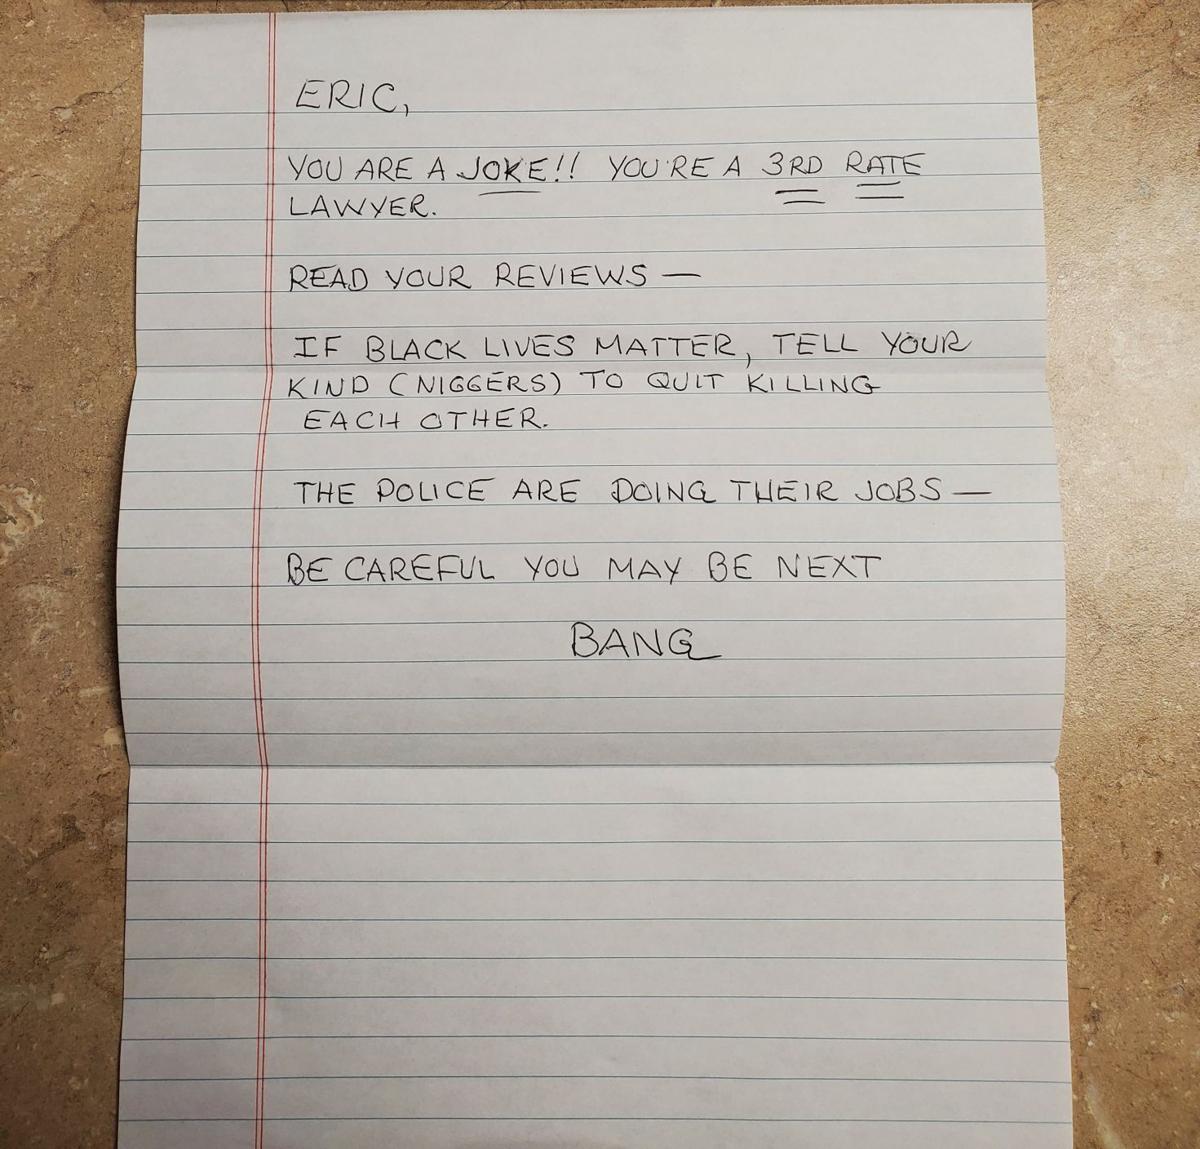 ERIC,
YOU ARE A JOKE!! YOU'RE A 3RD RATE
LAWYER.
READ YOUR REVIEWS —
IF BLACK LIVES MATTER, TELL YOUR
KIND (NIGGERS) TO QUIT KILLING
EACH OTHER.
THE POLICE ARE DOING THEIR JOBS —
BE CAREFUL YOU MAY BE NEXT
BANG